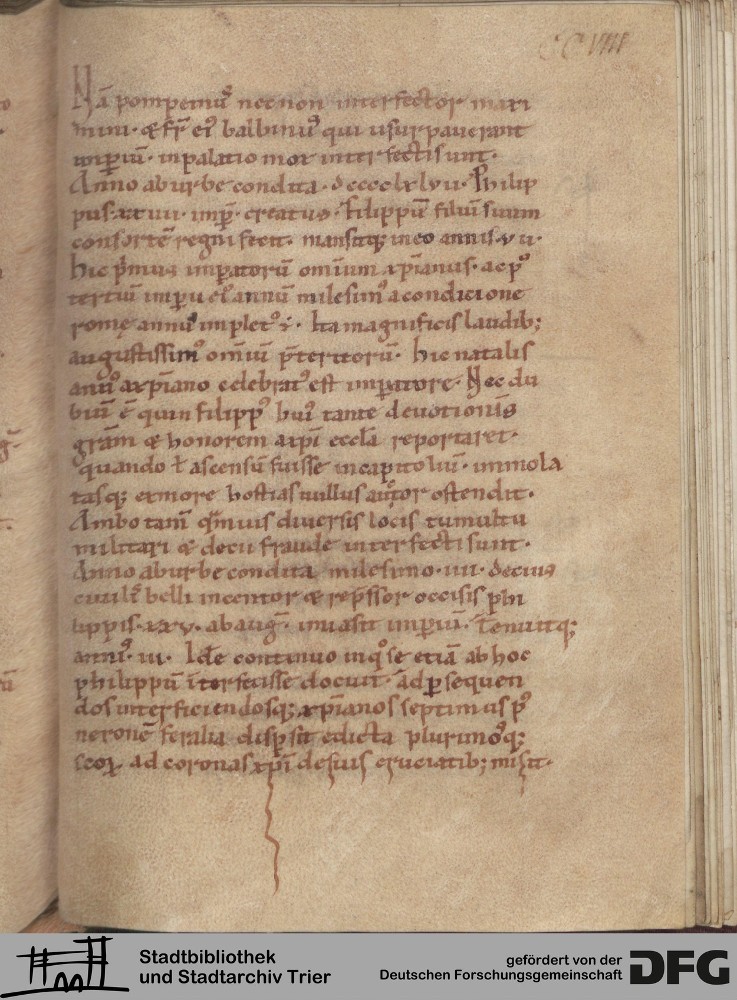 CCVIIII
Nā pompeiniꝰ necnon interfector maxi
mini · & fr̄ eiꝰ balbiniꝰ qui usurpauerant
imꝑiū · in palatio mox interfecti sunt ·
Anno ab urbe condita · dcccclxlvii · Philip
pus · xxiiii · imꝑ · creatus · filippū filiū suum
consortē regni fecit · mansitq; in eo annis · vii ·
hic pͥmus imꝑatorū omīum xp̄ianus · ac pꝰ
tertiū imꝑii eiꝰ annū milesimꝰ a condicione
romę annuꝰ impletꝰ ·ē· Ita magnificis laudib;
augustissimꝰ omīū p̄teritorū · hic natalis
anūꝰ a xp̄iano celebratꝰ est imꝑatore · Nec du
biū ē quin filippꝰ huiꝰ tante deuotionis
grām & honorem a xp̄i eccl̄a reportaret ·
quando ł ascensū fuisse in capitoliū · immola
tasq; ex more hostias nullus auctor ostendit ·
Ambo tam̄ qͣmuis diuersis locis tumultu
militari & decii fraude interfecti sunt ·
Anno ab urbe condita milesimo · iiii · decius
ciuilis belli incentor & rep̄ssor occisis phi
lippis · xxv · ab auḡ · inuasit imꝑiū · Tenuitq;
annis · iii · Idē continuo in qͦ se etiā ab hoc
philippū īterfecisse docuit · ad ꝑsequen
dos interficiendosq; xp̄ianos septimus pꝰ
neronē feralia disꝑsit edicta plurimosq;
sc̄oꝝ ad coronas xp̄i de suis cruciatib; misit ·
Stadtbibliothek
und Stadtarchiv Trier
gefördert von der
Deutschen Forschungsgemeinschaft
DFG